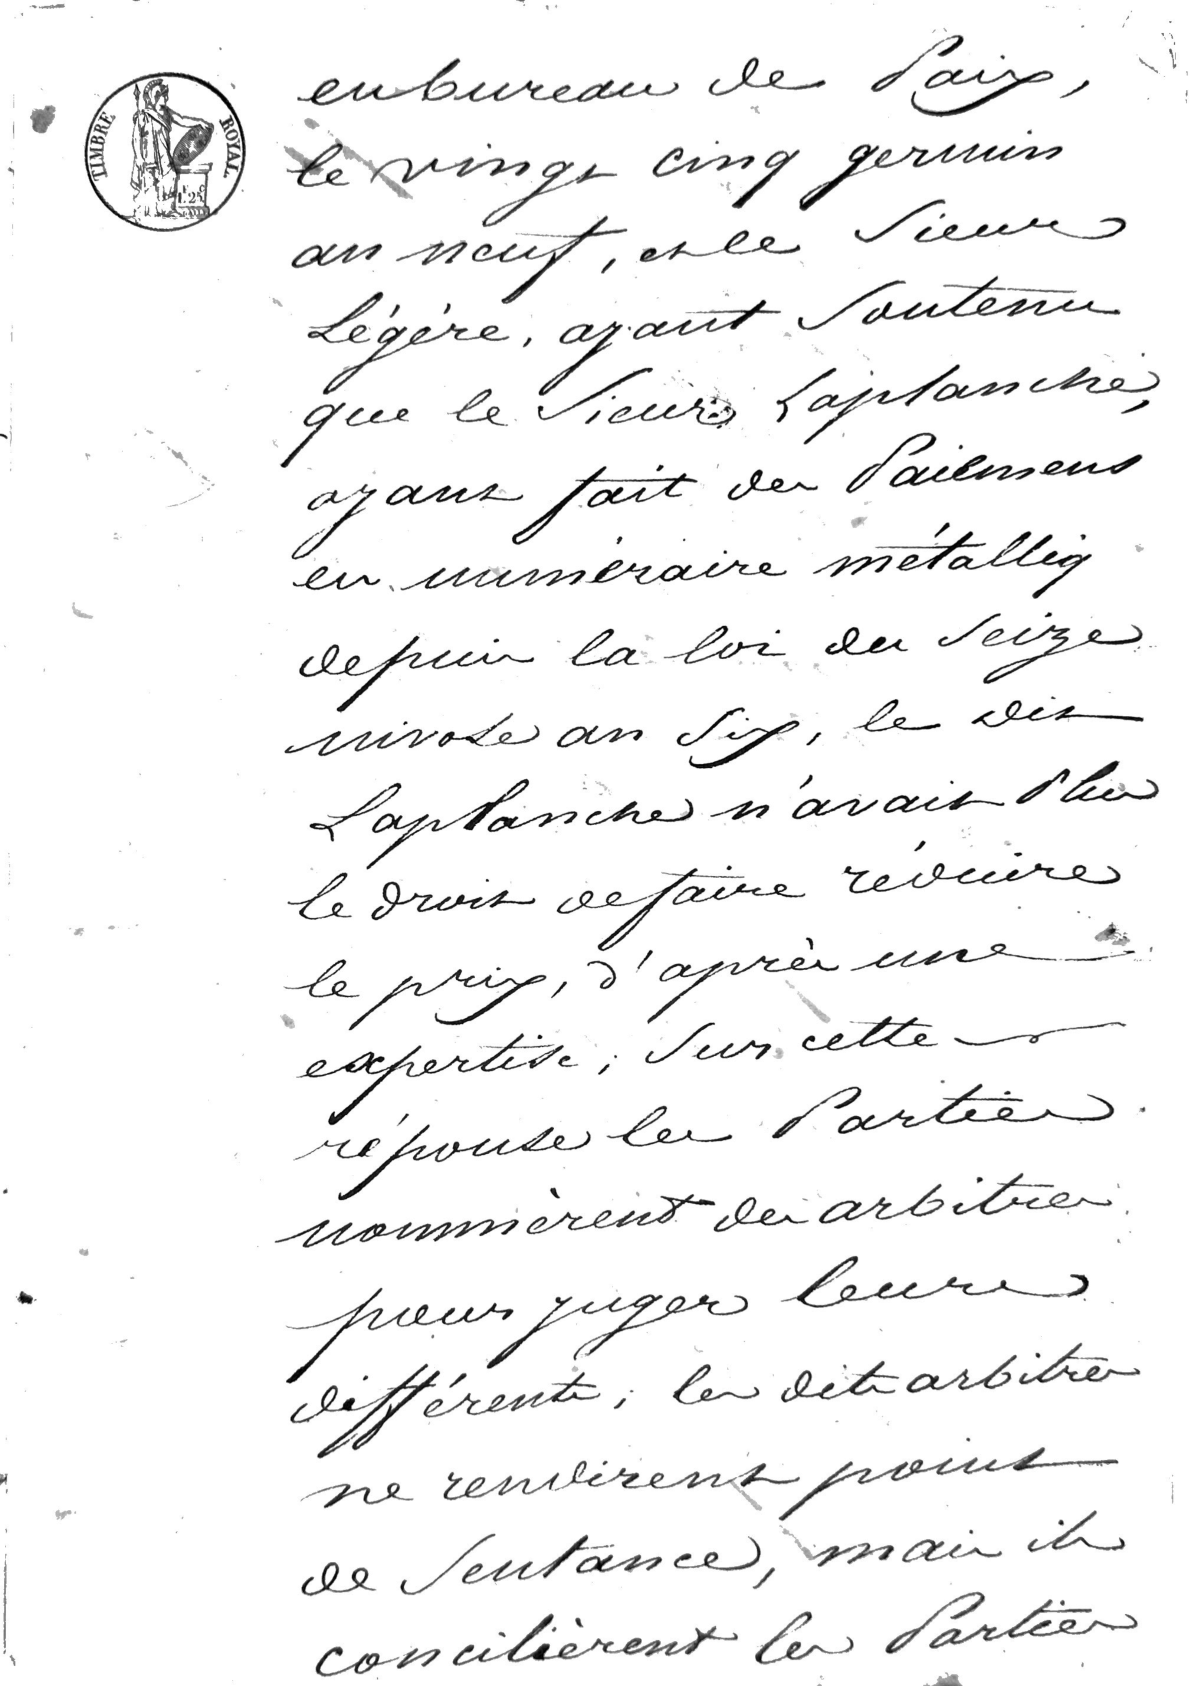 TIMBRE ROYAL
1.25
en bureau de Paix,
le vingt cinq germin
an neuf, et le Sieur
Légére, ayant Soutenu
que le Sieur Laplanche,
ayant fait des Paiemens
en numéraire métalliq
depuis la loi du Seize
nivose an Six, le dit
Laplanche n'avait Plus
le droit de faire réduire
le prix, d'après une
expertise; Sur cette
réponse les Parties
nommèrent des arbitres
pour juger leurs
différents; les dits arbitres
ne rendirent point
de Sentance, mais ils
concilièrent les Parties